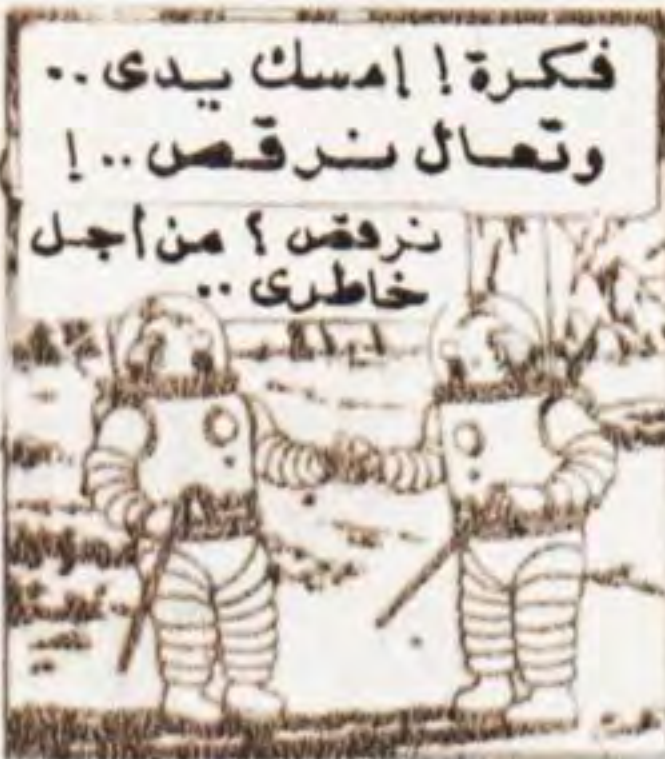 فكرة ! إمسك يدى ..
وتعال نرقص .. !
نرقص ؟ من أجل
خاطرى ..